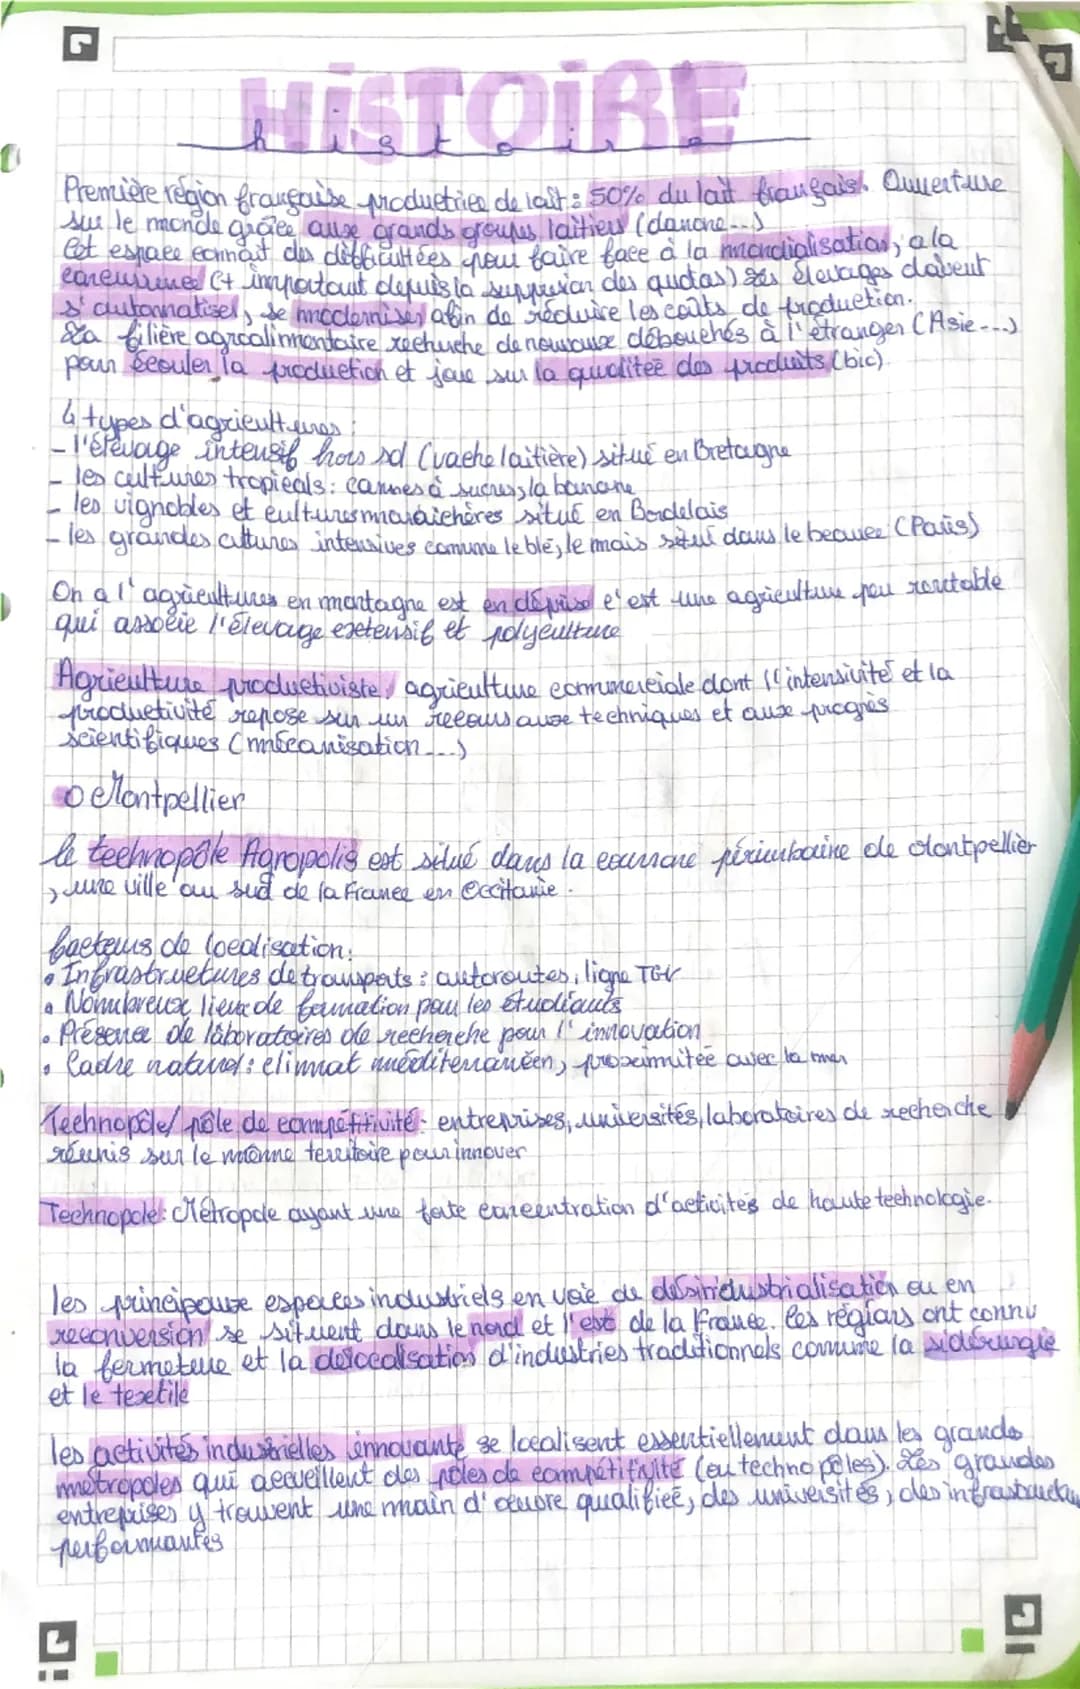 HiSTOiRE
histoire
Première région française productrice de lait : 50% du lait français. Ouverture
sur le monde grâce aux grands groupes laitiers (danone...)
Cet espace connaît des difficultées pour faire face à la mondialisation, a la
concurrence (+ important depuis la suppression des quotas) Les élevages doivent
s'automatiser, se moderniser afin de réduire les coûts de production.
La filière agroalimentaire recherche de nouveaux débouchés à l'étranger (Asie...)
pour écouler la production et joue sur la qualitée des produits (bio).
4 types d'agricultures :
- l'élevage intensif hors sol (vache laitière) situé en Bretagne
- les cultures tropicals : cannes à sucres, la banane
- les vignobles et cultures maraichères situé en Bordelais
- les grandes cultures intensives comme le blé, le mais situé dans le beauce (Paris)
On a l'agricultures en montagne est en déprise c'est une agriculture peu rentable
qui associe l'élevage extensif et polyculture
Agriculture productiviste, agriculture commerciale dont l'intensivité et la
productivité repose sur un recours aux techniques et aux progrès
scientifiques (mécanisation...)
o Montpellier
le technopôle Agropolis est situé dans la couronne périurbaine de Montpellier
, une ville au sud de la France en Occitanie.
facteurs de localisation:
• Infrastructures de transports : autoroutes, ligne TGV
• Nombreux lieux de formation pour les étudiants
• Présence de laboratoires de recherche pour l'innovation
• Cadre naturel : climat méditerranéen, proximitée avec la mer
Technopôle/ pôle de compétitivité: entreprises, universités, laboratoires de recherche
réunis sur le même territoire pour innover
Technopole: Métropole ayant une forte concentration d'activités de haute technologie.
les principaux espaces industriels en voie de désindustrialisation ou en
reconversion se situent dans le nord et l'est de la France. les régions ont connu
la fermeture et la délocalisation d'industries traditionnels comme la sidérurgie
et le textile
les activités industrielles innovante se localisent essentiellement dans les grande
métropoles qui accueillent des pôles de compétitivité (ou technopôles). Les grandes
entreprises y trouvent une main d'œuvre qualifiée, des universités, des infrastructu
performantes